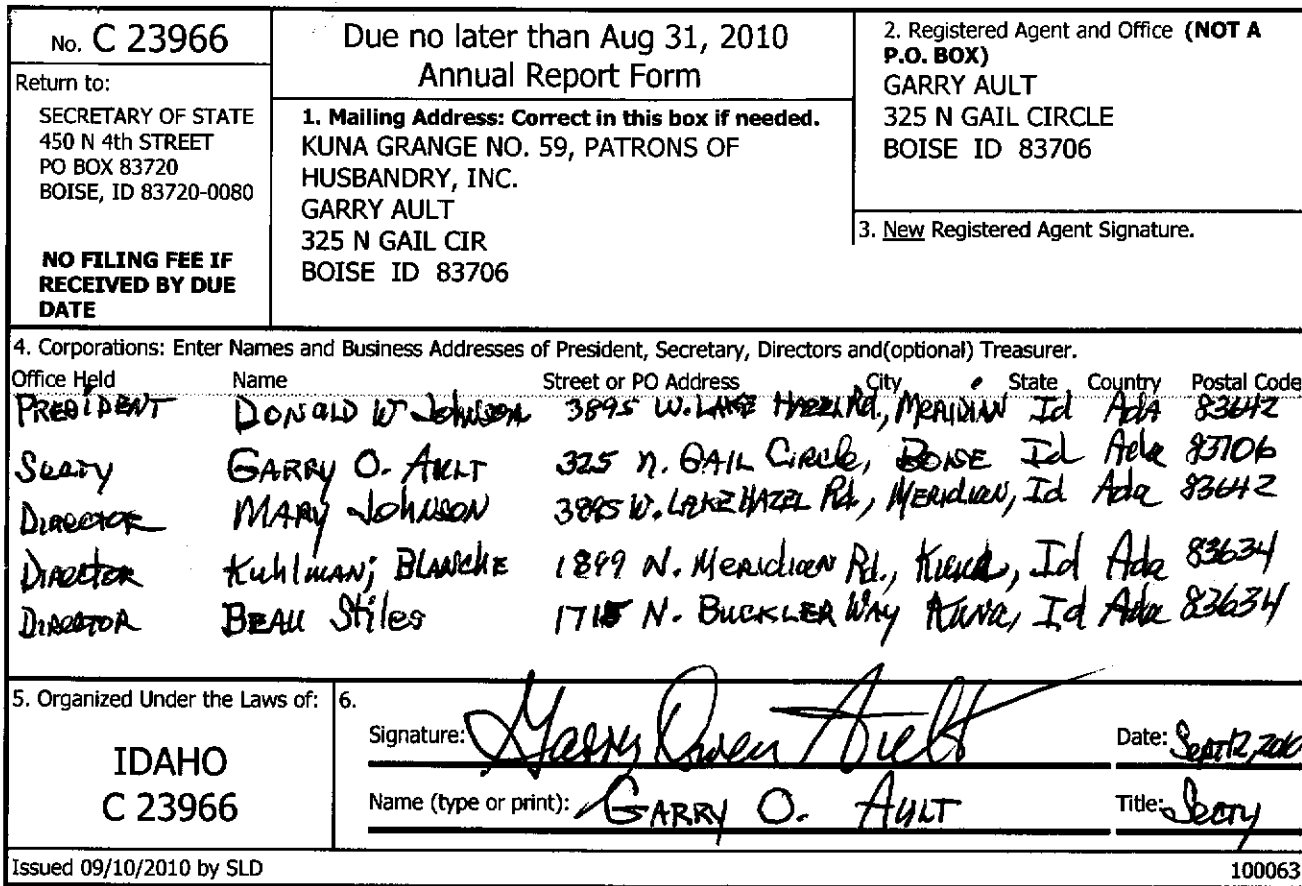 No. C 23966
Return to:
SECRETARY OF STATE
450 N 4th STREET
PO BOX 83720
BOISE, ID 83720-0080
NO FILING FEE IF
RECEIVED BY DUE
DATE
Due no later than Aug 31, 2010
Annual Report Form
1. Mailing Address: Correct in this box if needed.
KUNA GRANGE NO. 59, PATRONS OF
HUSBANDRY, INC.
GARRY AULT
325 N GAIL CIR
BOISE ID 83706
2. Registered Agent and Office (NOT A
P.O. BOX)
GARRY AULT
325 N GAIL CIRCLE
BOISE ID 83706
3. New Registered Agent Signature.
4. Corporations: Enter Names and Business Addresses of President, Secretary, Directors and(optional) Treasurer.
Office Held Name Street or PO Address City State Country Postal Code
PRESIDENT DONALD W JOHNSON 3895 W. LAKE HAZEL Rd., MERIDIAN Id ADA 83642
Secty GARRY O. AULT 325 N. GAIL CIRCLE, BOISE Id Ada 83706
DIRECTOR MARY JOHNSON 3895 W. LAKE HAZEL Rd., MERIDIAN, Id Ada 83642
DIRECTOR Kuhlman; BLANCHE 1899 N. Meridian Rd., Kuna, Id Ada 83634
DIRECTOR BEAU Stiles 1715 N. BUCKLER WAY KUNA, Id Ada 83634
5. Organized Under the Laws of:
IDAHO
C 23966
6.
Signature: Garry Owen Ault Date: Sept 12, 2010
Name (type or print): GARRY O. AULT Title: Secty
Issued 09/10/2010 by SLD 100063